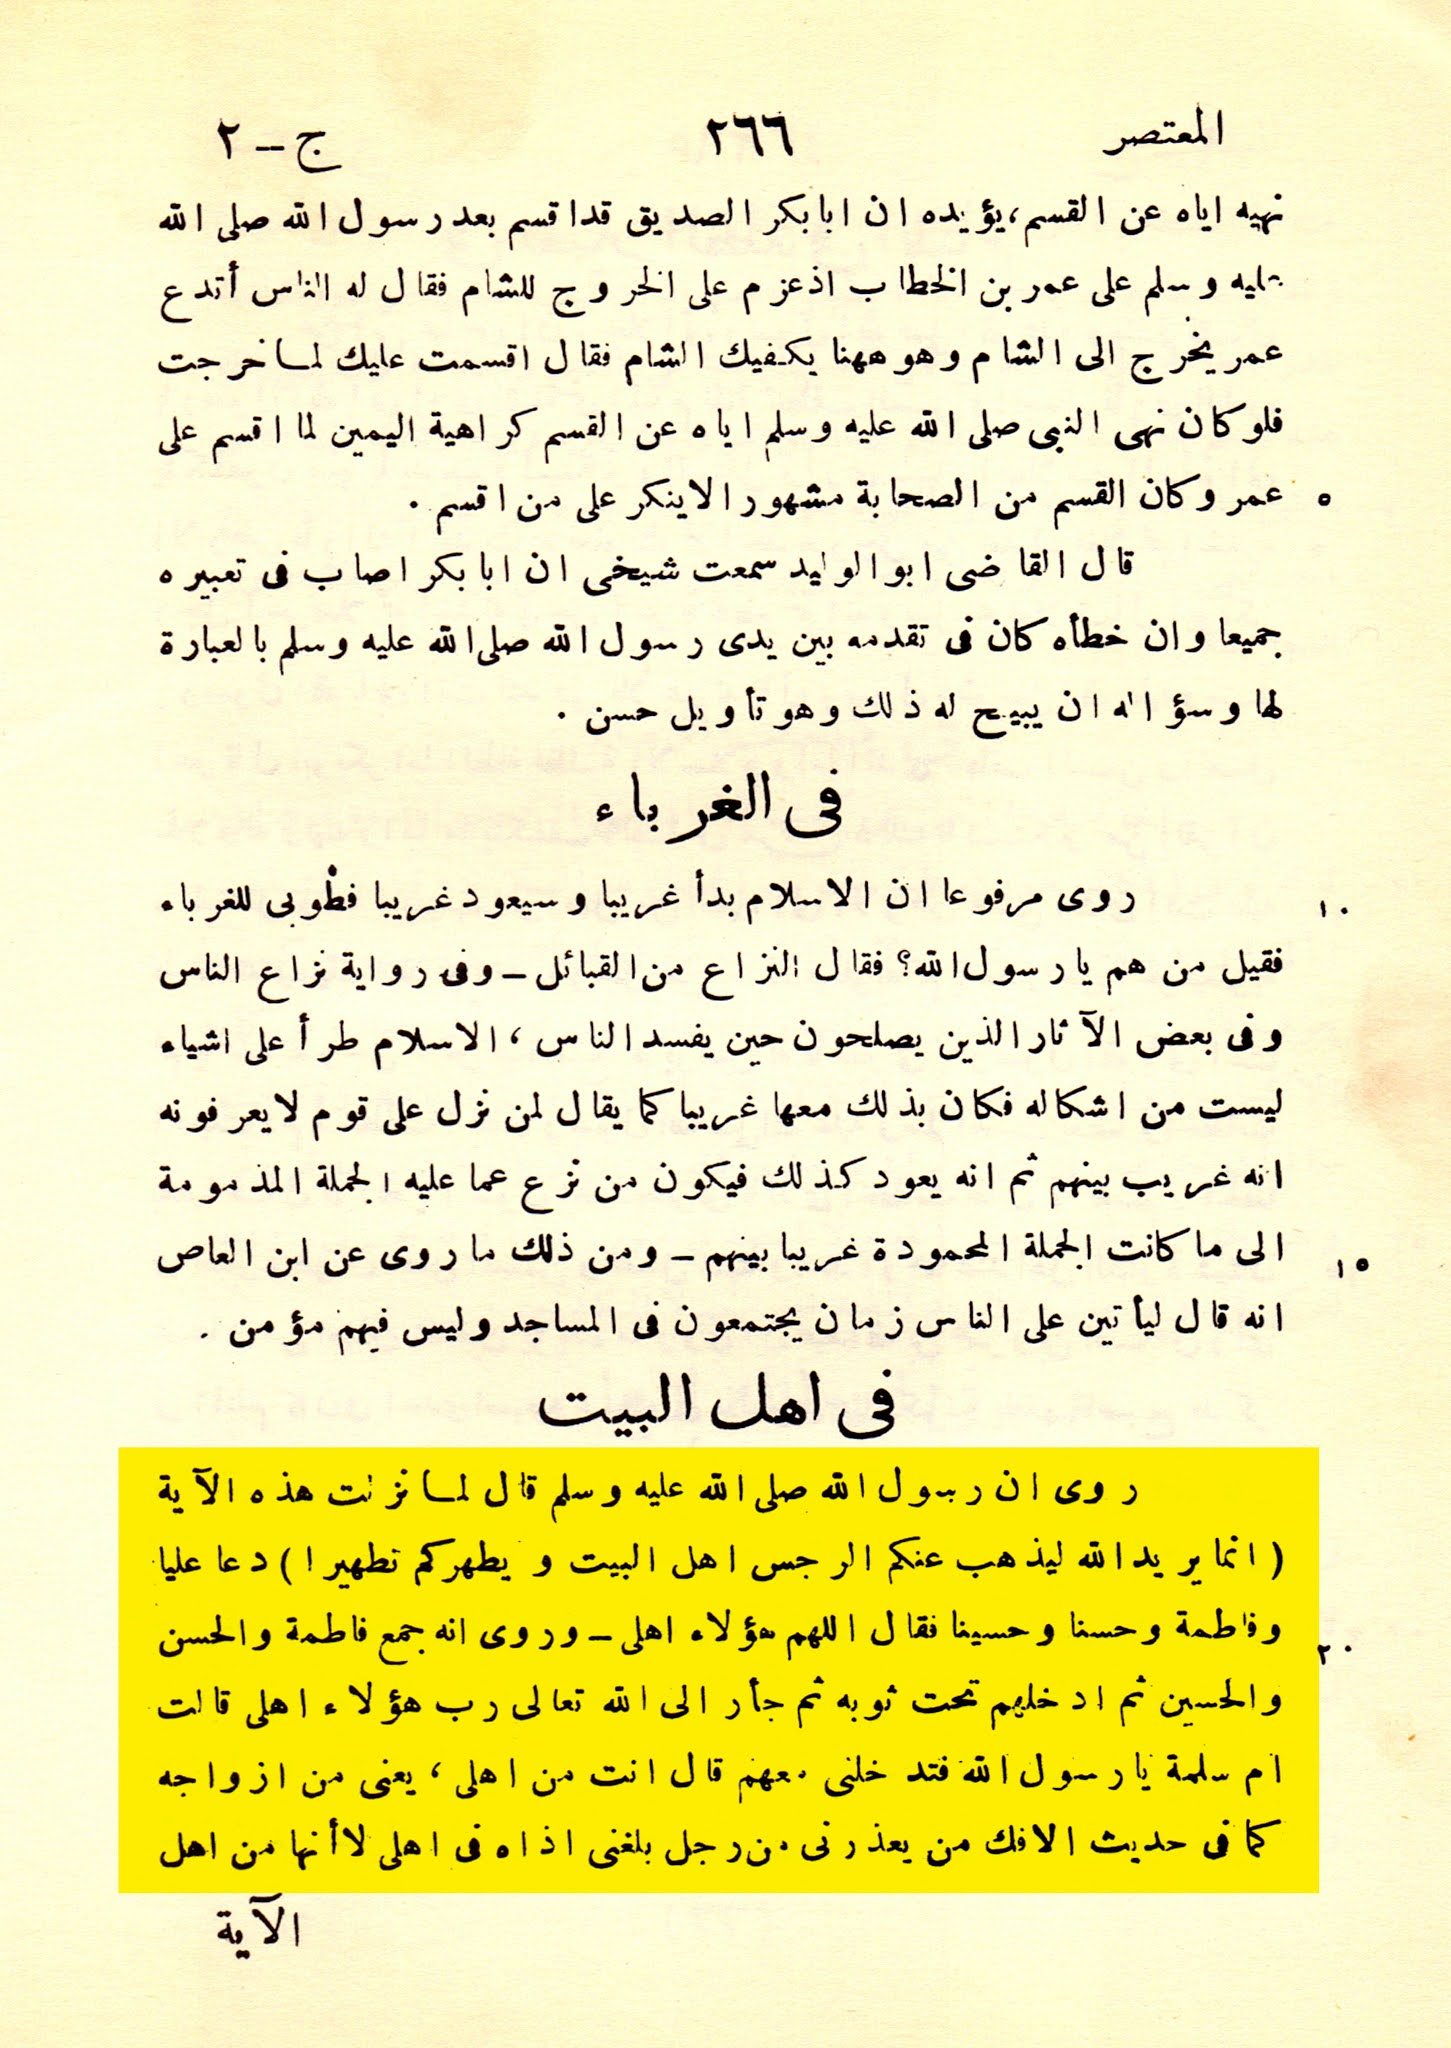 المعتصر ٢٦٦ ج – ٢
نهيه اياه عن القسم، يؤيده ان ابا بكر الصديق قد اقسم بعد رسول الله صلى الله
عليه وسلم على عمر بن الخطاب اذ عزم على الخروج للشام فقال له الناس أتدع
عمر يخرج الى الشام وهو ههنا يكفيك الشام فقال اقسمت عليك لما خرجت
فلو كان نهى النبى صلى الله عليه وسلم اياه عن القسم كراهية اليمين لما اقسم على
عمر وكان القسم من الصحابة مشهورا لا ينكر على من اقسم . ٥
قال القاضى ابو الوليد سمعت شيخى ان ابا بكر اصاب فى تعبيره
جميعا وان خطأه كان فى تقدمه بين يدى رسول الله صلى الله عليه وسلم بالعبارة
لها وسؤاله ان يبيح له ذلك وهو تأويل حسن .
فى الغرباء
روى مرفوعا ان الاسلام بدأ غريبا وسيعود غريبا فطْوبى للغرباء ١٠
فقيل من هم يا رسول الله؟ فقال النزاع من القبائل – وفى رواية نزاع الناس
وفى بعض الآثار الذين يصلحون حين يفسد الناس ، الاسلام طرأ على اشياء
ليست من اشكاله فكان بذلك معها غريبا كما يقال لمن نزل على قوم لا يعرفونه
انه غريب بينهم ثم انه يعود كذلك فيكون من نزع عما عليه الجملة المذمومة
الى ما كانت الجملة المحمودة غريبا بينهم – ومن ذلك ما روى عن ابن العاص ١٥
انه قال ليأتين على الناس زمان يجتمعون فى المساجد وليس فيهم مؤمن .
فى اهل البيت
روى ان رسول الله صلى الله عليه وسلم قال لما نزلت هذه الآية
( انما يريد الله ليذهب عنكم الرجس اهل البيت ويطهركم تطهيرا ) دعا عليا
وفاطمة وحسنا وحسينا فقال اللهم هؤلاء اهلى – وروى انه جمع فاطمة والحسن ٢٠
والحسين ثم ادخلهم تحت ثوبه ثم جأر الى الله تعالى رب هؤلاء اهلى قالت
ام سلمة يا رسول الله فتدخلنى معهم قال انت من اهلى ، يعنى من ازواجه
كما فى حديث الافك من يعذرنى من رجل بلغنى اذاه فى اهلى لا أنها من اهل
الآية